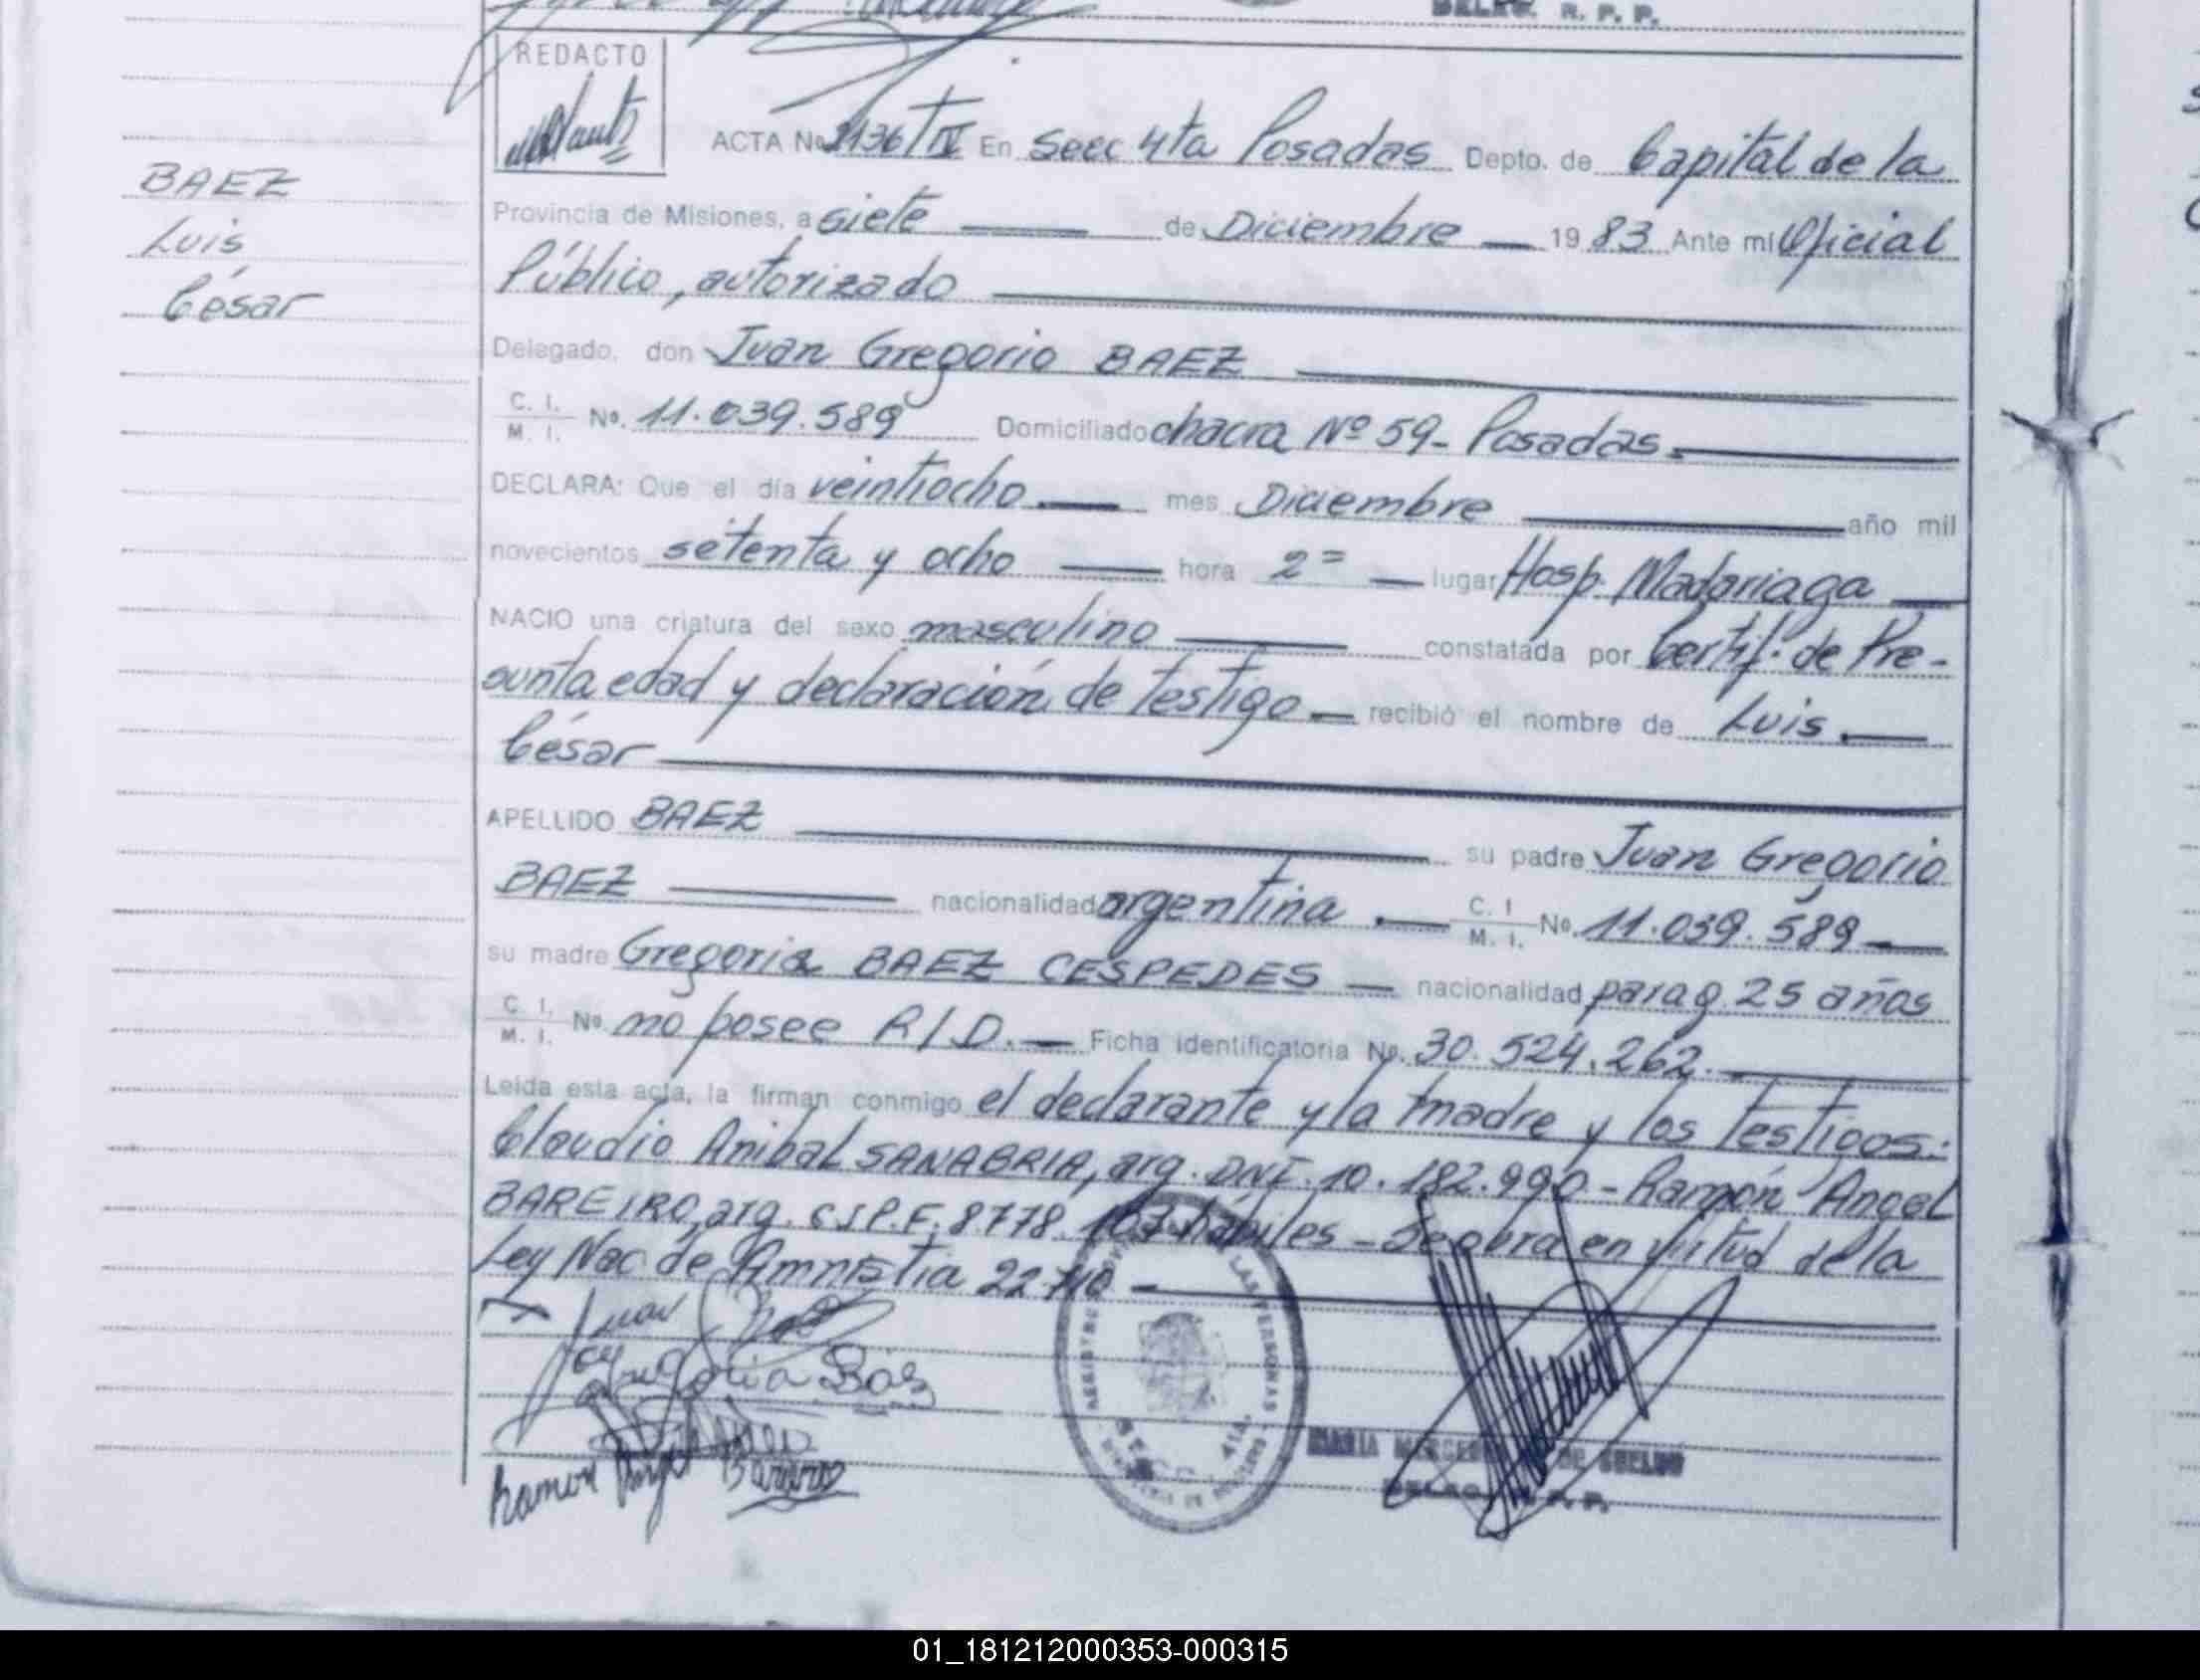 DELEG. R. P. P.
REDACTO
ACTA No 1136/IV En Secc 4ta Posadas Depto. de Capital de la
BAEZ
Luis
César
Provincia de Misiones, a siete de Diciembre 1983 Ante mi Oficial
Público, autorizado
Delegado, don Juan Gregorio BAEZ
C. I.
M. I. No. 11.039.589 Domiciliado chacra Nº 59- Posadas.
DECLARA: Que el día veintiocho mes Diciembre año mil
novecientos setenta y ocho hora 2= lugar Hosp. Madariaga
NACIO una criatura del sexo masculino constatada por Certif. de Pre-
sunta edad y declaración de testigo recibió el nombre de Luis
César
APELLIDO BAEZ su padre Juan Gregorio
BAEZ nacionalidad argentina C. I
M. I. No. 11.039.589
su madre Gregoria BAEZ CESPEDES nacionalidad parag. 25 años
C. I.
M. I. No. no posee R/D. Ficha identificatoria No. 30.524.262.
Leída esta acta, la firman conmigo el declarante y la madre y los testigos:
Claudio Anibal SANABRIA, arg. DNI. 10.182.990 - Ramón Angel
BAREIRO, arg. CIP.F. 8.778.107 hábiles - Se obra en virtud de la
Ley Nac de Amnistia 22.710
Juan Baez
Gregoria Baez
Ramon Angel Bareiro
LAS PERSONAS
MARIA DE CUELHO
DELEG. R. P. P.
01_181212000353-000315